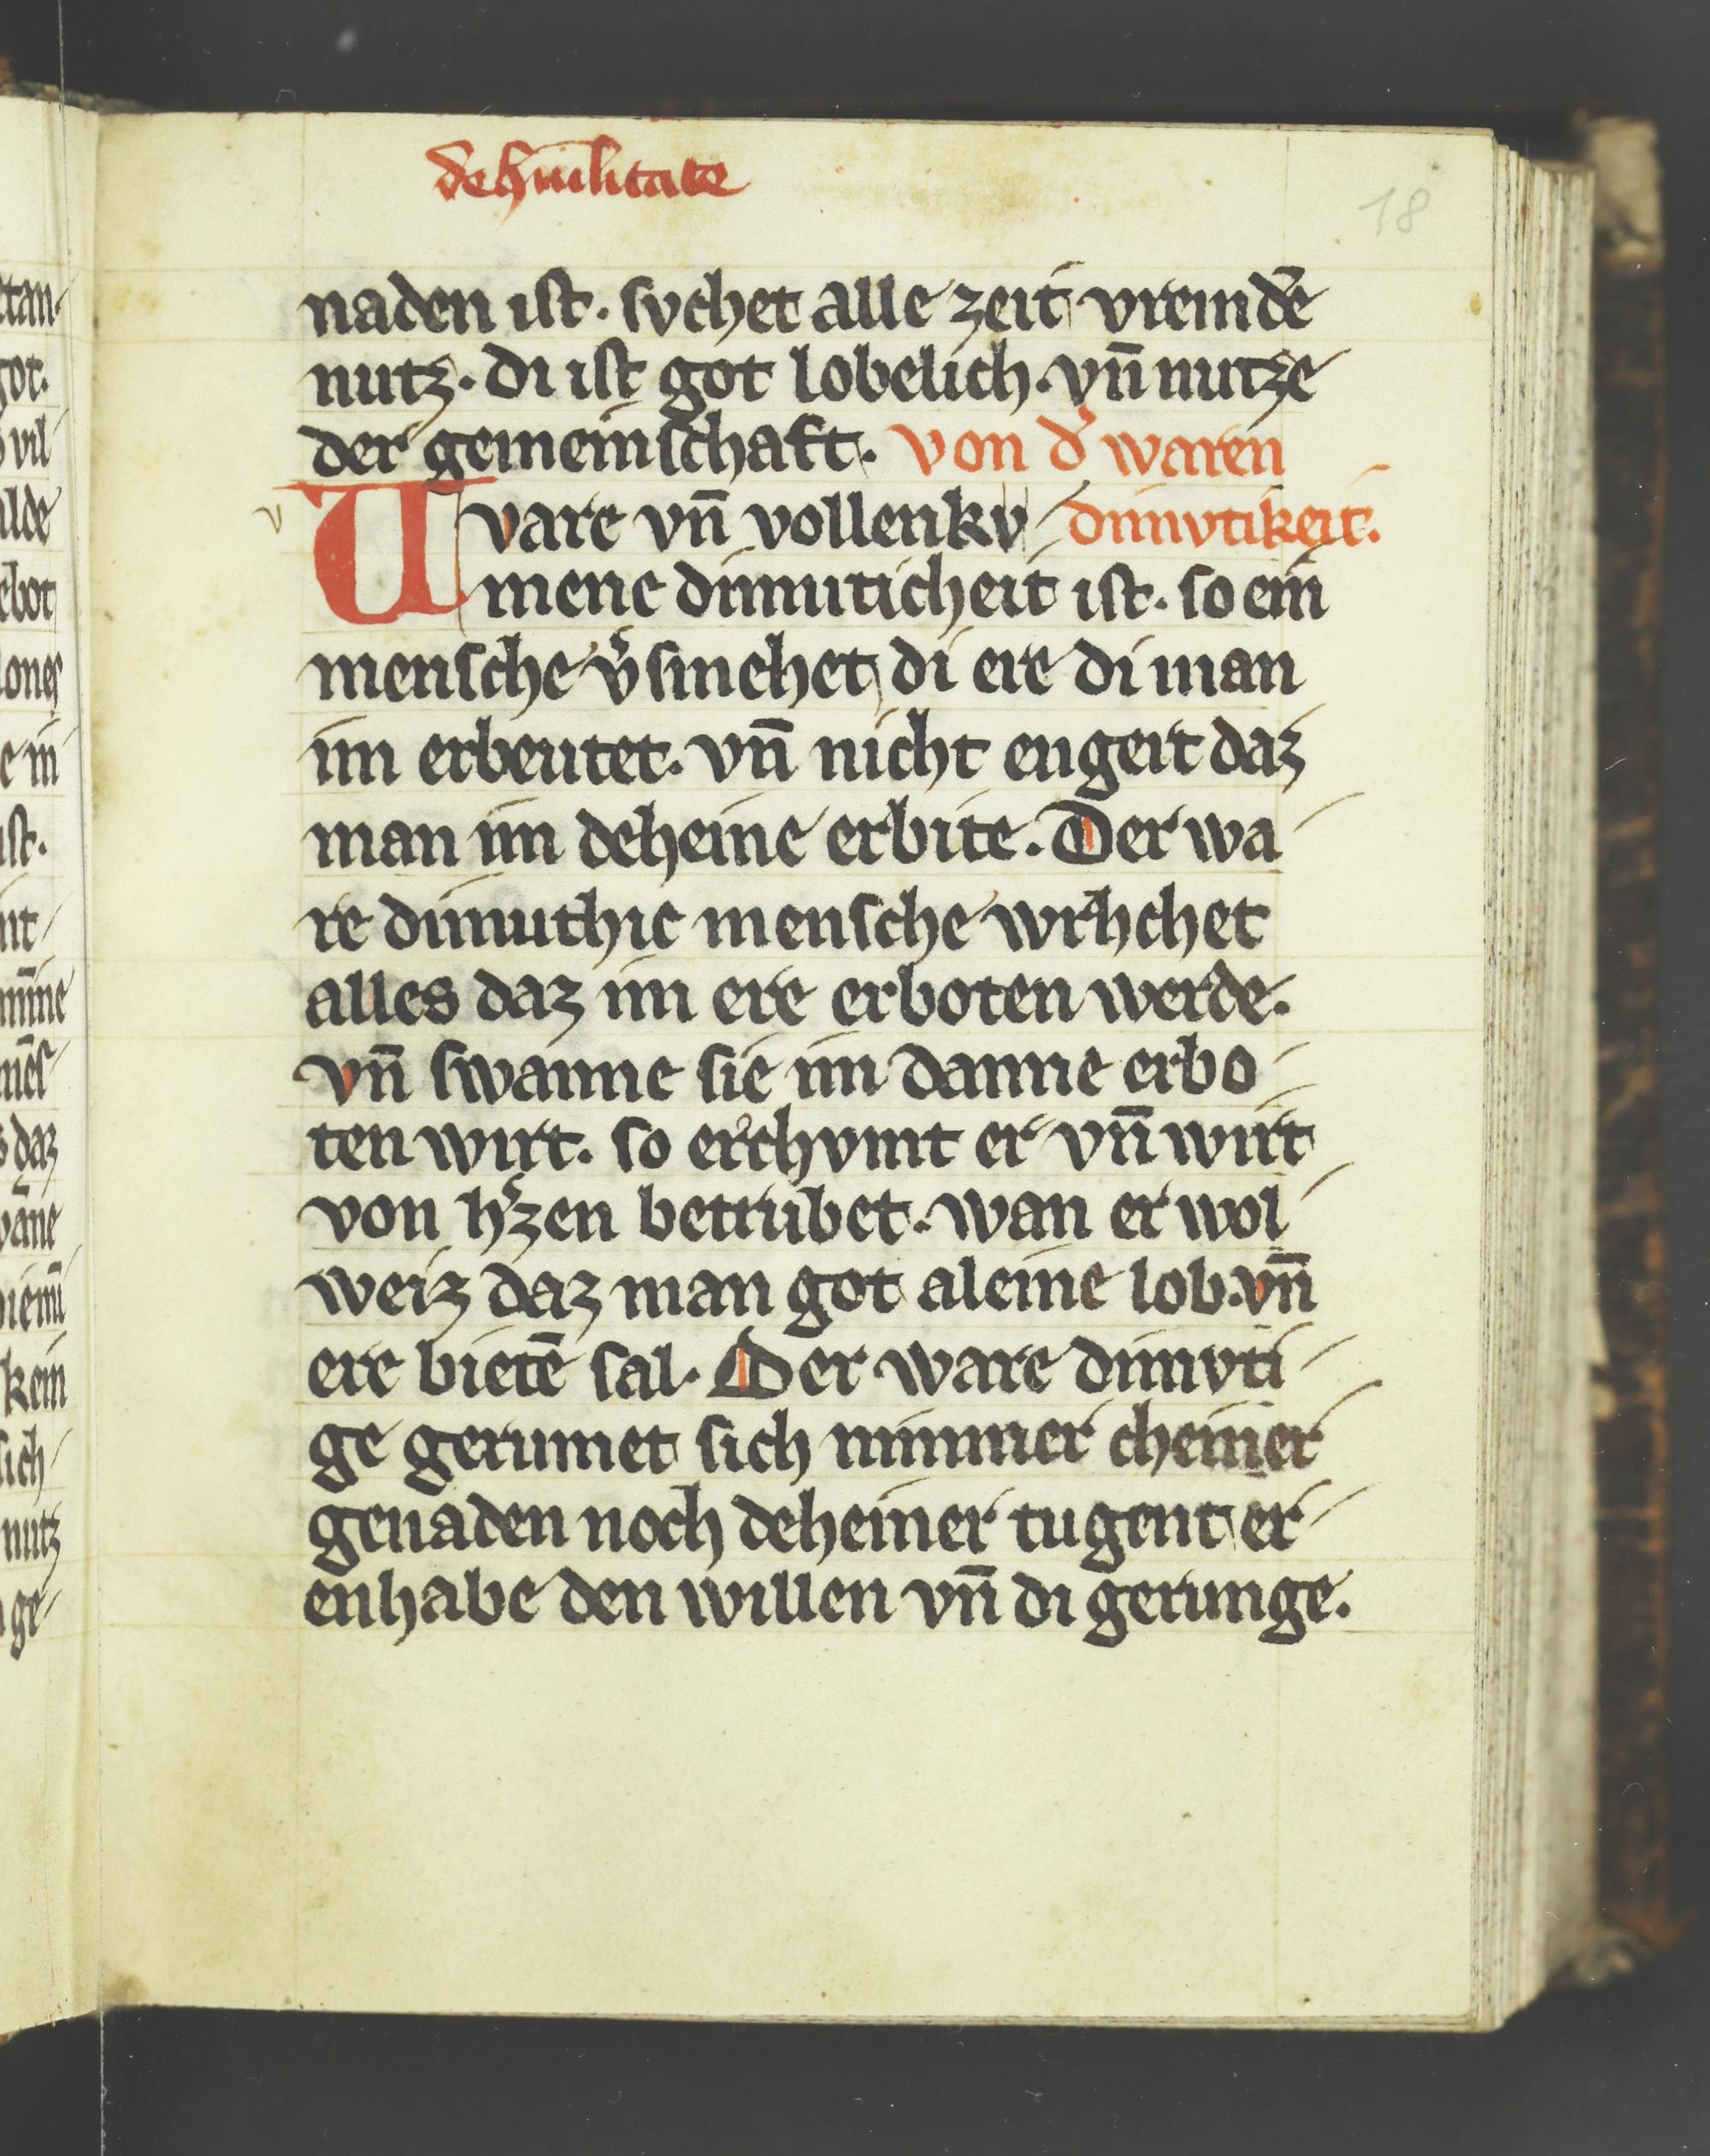 de hūilitate
18
naden ist. svchet alle zeit vremdē
nutz. di ist got lobelich. vn̄ nutze
der gemeinschaft. von d᷑ waren
Uvare vn̄ vollenkv dimvtikeit.
mene dimuticheit ist. so ein
mensche v᷑smehet di ere di man
im erbeutet. vn̄ nicht engert daz
man im deheine erbite. Der wa
re dimuthic mensche
alles daz im ere erboten werde.
vn̄ swanne sie im danne erbo
ten wirt. so erchvmt er vn̄ wirt
von h᷑zen betrubet. wan er wol
weiz daz man got aleine lob. vn̄
ere bietē sal. Der ware dimvti
ge gerumet sich nimmer cheiner
genaden noch deheiner tugent er
enhabe den willen vn̄ di gerunge.